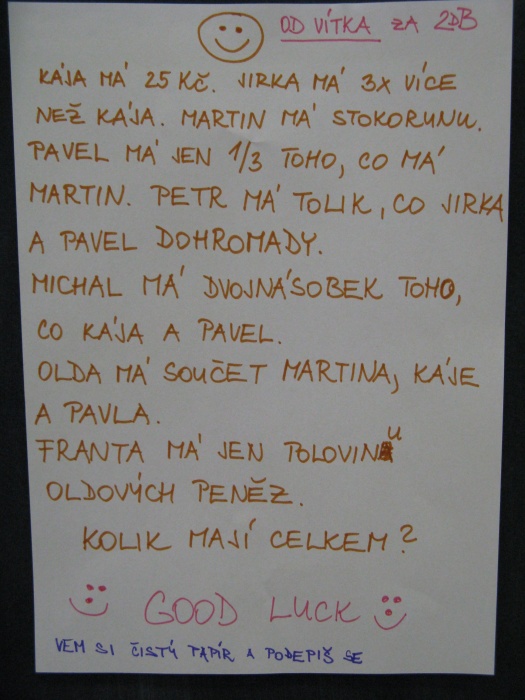 OD VÍTKA ZA 2DB
KÁJA MÁ 25 KČ. JIRKA MÁ 3X VÍCE
NEŽ KÁJA. MARTIN MÁ STOKORUNU.
PAVEL MÁ JEN 1/3 TOHO, CO MÁ
MARTIN. PETR MÁ TOLIK, CO JIRKA
A PAVEL DOHROMADY.
MICHAL MÁ DVOJNÁSOBEK TOHO,
CO KÁJA A PAVEL.
OLDA MÁ SOUČET MARTINA, KÁJE
A PAVLA.
FRANTA MÁ JEN POLOVINU
OLDOVÝCH PENĚZ.
KOLIK MAJÍ CELKEM?
GOOD LUCK
VEM SI ČISTÝ PAPÍR A PODEPIŠ SE